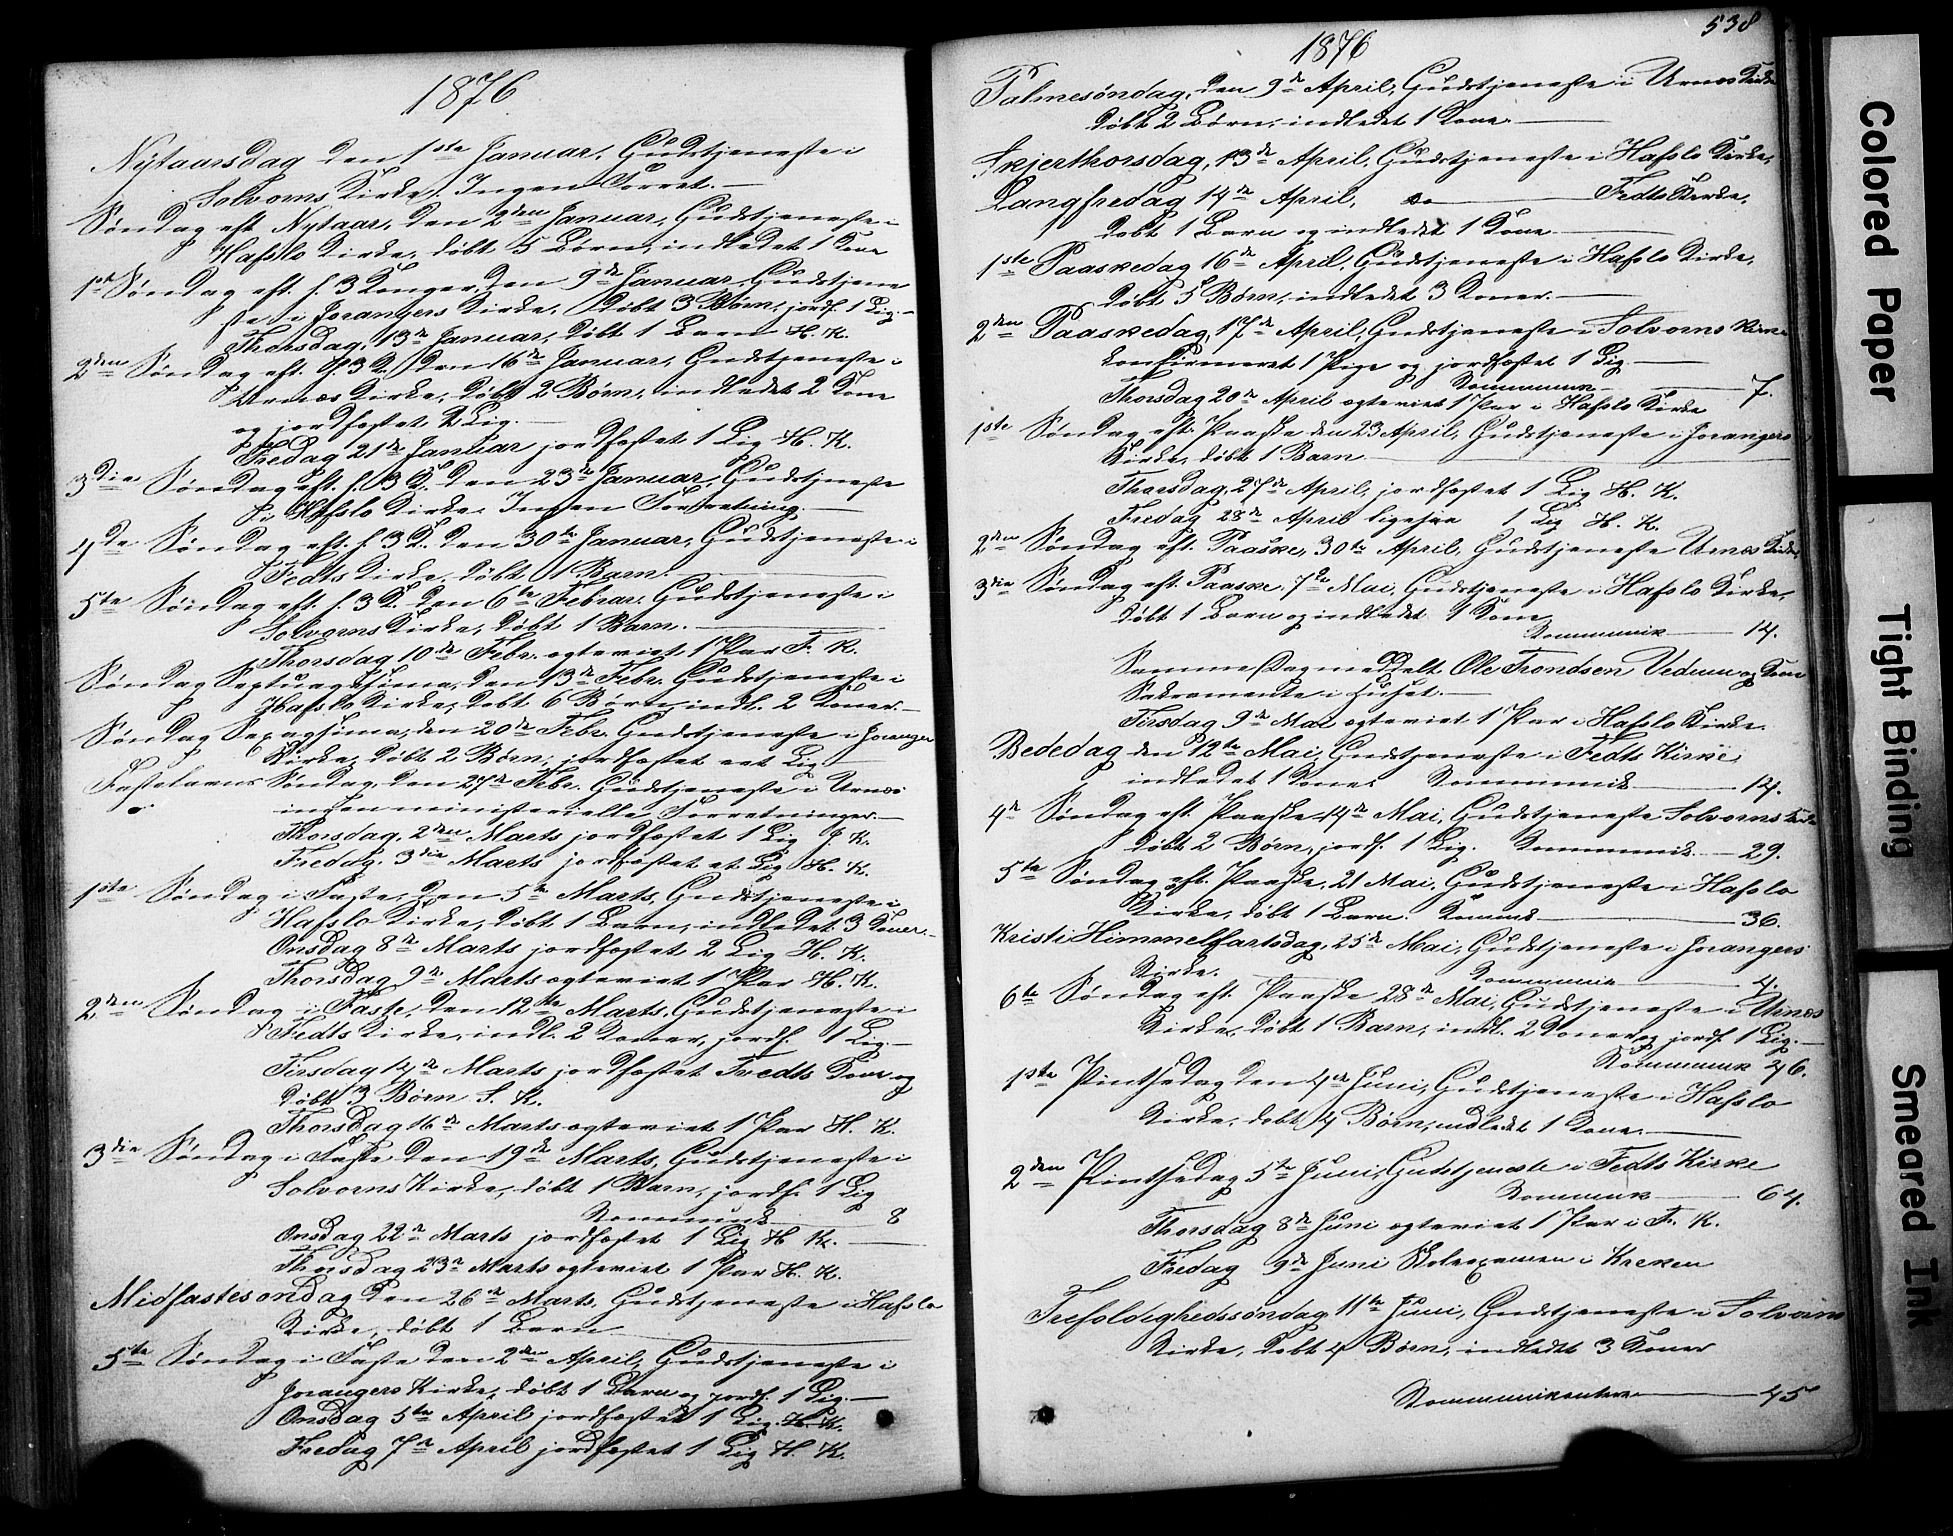 1876
Nytaarsdag den 1ste Januar, Gudstjeneste i
Solvorns Kirke. Ingen Forret.
Søndag eft Nytaar, den 2den Januar, Gudstjeneste i
Hafslo Kirke, døbt 5 Børn, indledet 1 Kone
1ste Søndag eft. h. 3 Konger, den 9de Januar, Gudstjene
ste i Jorangers Kirke, døbt 3 Børn, jordf. 1 Lig.
Thorsdag, 13de Januar, døbt 1 Barn H. K.
2den Søndag eft. h. 3 K. den 16de Januar, Gudstjeneste i
Urnæs Kirke, døbt 2 Børn, indledet 2 Kone
og jordfæstet 2 Lig.
Fredag 21de Januar jordfæstet 1 Lig H. K.
3die Søndag eft. h. 3 K. den 23de Januar, Gudstjeneste
i Hafslo Kirke. Ingen Forretning.
4de Søndag eft. h. 3 K. den 30te Januar, Gudstjeneste i
Fedts Kirke, døbt 1 Barn.
5te Søndag eft. h. 3 K. den 6te Februar. Gudstjeneste i
Solvorns Kirke, døbt 1 Barn.
Thorsdag 10de Febr. egteviet 1 Par F. K.
Søndag Septuagesima, den 13de Febr. Gudstjeneste i
Hafslo Kirke, døbt 6 Børn, indl. 2 Koner.
Søndag Sexagesima, den 20de Febr. Gudstjeneste i Joranger
Kirke, døbt 2 Børn, jordfæstet eet Lig
Fastelavns Søndag, den 27de Febr. Gudstjeneste i Urnæs
ingen ministerielle Forretninger.
Thorsdag, 2den Marts jordfæstet 1 Lig J. K.
Fredag, 3die Marts jordfæstet et Lig H. K.
1ste Søndag i Faste, den 5te Marts, Gudstjeneste i
Hafslo Kirke, døbt 1 Barn, indledet 3 Koner.
Onsdag 8de Marts jordfæstet 2 Lig H. K.
Thorsdag 9de Marts egteviet 1 Par H. K.
2den Søndag i Faste, den 12te Marts, Gudstjeneste i
Fedts Kirke, indl. 2 Koner, jordf. 1 Lig.
Tirsdag 14de Marts jordfæstet Kone og
døbt 3 Børn S. K.
Thorsdag 16de Marts egteviet 1 Par H. K.
3die Søndag i Faste den 19de Marts, Gudstjeneste i
Solvorns Kirke, døbt 1 Barn, jordf. 1 Lig
Kommunik 8
Onsdag 22de Marts jordfæstet 1 Lig H K.
Thorsdag 23de Marts egteviet 1 Par H. K.
Midfastesøndag den 26de Marts, Gudstjeneste i Hafslo
Kirke, døbt 1 Barn
5te Søndag i Faste den 2den April, Gudstjeneste i
Jorangers Kirke, døbt 1 Barn og jordf. 1 Lig.
Onsdag 5te April jordfæstet 1 Lig. H. K.
Fredag 7de April jordfæstet 1 Lig H. K.
538
1876
Palmesøndag, den 9de April, Gudstjeneste i Urnæs Kirke
døbt 2 Børn, indledet 1 Kone
Skjerthorsdag, 13de April, Gudstjeneste i Hafslo Kirke,
Langfredag 14de April, do Fedts Kirke,
døbt 1 Barn og indledet 1 Kone
1ste Paaskedag 16de April, Gudstjeneste i Hafslo Kirke,
døbt 5 Børn, indledet 3 Koner.
2den Paaskedag, 17de April, Gudstjeneste i Solvorns Kirke
konfirmeret 1 Pige og jordfæstet 1 Lig
Kommunik 7.
Thorsdag 20de April egteviet 1 Par i Hafslo Kirke
1ste Søndag eft. Paaske den 23 April, Gudstjeneste i Jorangers
Kirke, døbt 1 Barn
Thorsdag, 27de April, jordfæstet 1 Lig H. K.
Fredag 28de April ligesaa 1 Lig H. K.
2den Søndag eft. Paaske, 30te April, Gudstjeneste Urnæs Kirke
3die Søndag eft. Paaske, 7de Mai, Gudstjeneste i Hafslo Kirke,
døbt 1 Barn og indledet 1 Kone
Kommunik 14.
Sammesteds meddelt Ole Trondsen Vedum og Kone
Sakramente i Huset.
Tirsdag 9de Mai egteviet 1 Par i Hafslo Kirke.
Bededag den 12te Mai, Gudstjeneste i Fedts Kirke,
indledet 1 Kone. Kommunik 14.
4de Søndag eft. Paaske 14de Mai, Gudstjeneste Solvorns Kirke
døbt 2 Børn, jordf. 1 Lig. Kommunik 29.
5te Søndag eft. Paaske, 21 Mai, Gudstjeneste i Hafslo
Kirke, døbt 1 Barn. Kommunik 36.
Kristi Himmelfartsdag, 25de Mai, Gudstjeneste i Jorangers
Kirke. Kommunik 4.
6te Søndag eft. Paaske 28de Mai, Gudstjeneste i Urnæs
Kirke, døbt 1 Barn, indl. 2 Koner og jordf. 1 Lig.
Kommunik 26.
1ste Pintsedag den 4de Juni, Gudstjeneste i Hafslo
Kirke, døbt 4 Børn, indledet 1 Kone.
2den Pintsedag 5te Juni, Gudstjeneste i Fedts Kirke
Kommunik 64.
Thorsdag 8de Juni egteviet 1 Par i F. K.
Fredag 9de Juni Skoleexamen i Kreken
Trefoldighedssøndag 11te Juni, Gudstjeneste i Solvorns
Kirke, døbt 4 Børn, indledet 3 Koner
Kommunikanter 45
Colored Paper
Tight Binding
Smeared Ink